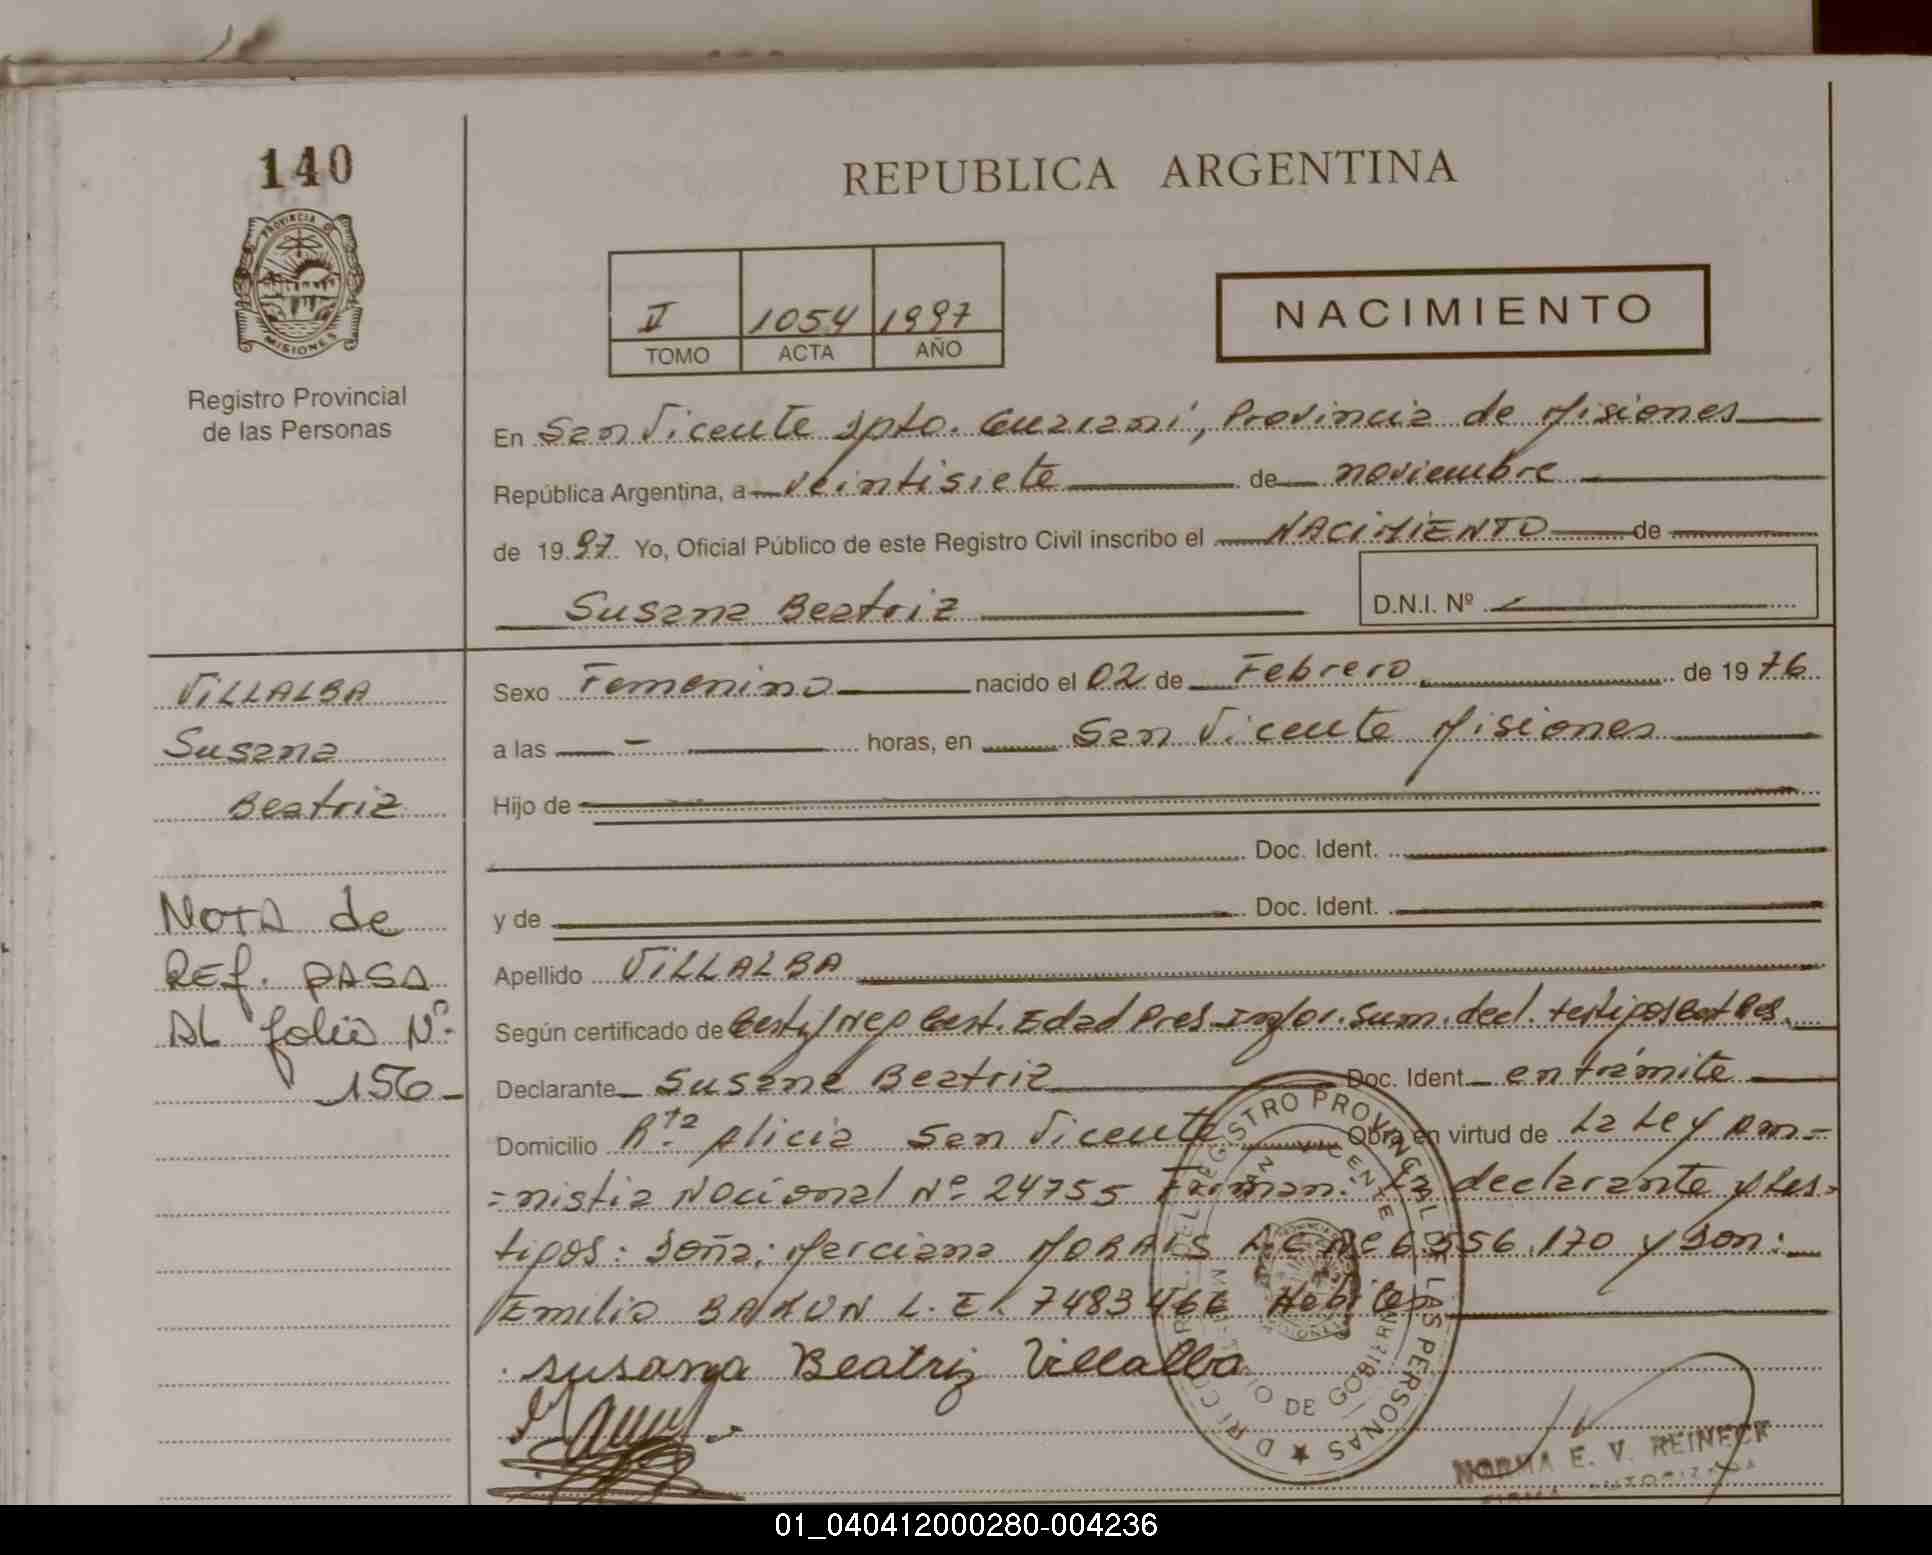 140
PROVINCIA DE
MISIONES
Registro Provincial
de las Personas
REPUBLICA ARGENTINA
II 1054 1997
TOMO ACTA AÑO
NACIMIENTO
En San Vicente Dpto. Guaraní, Provincia de Misiones
República Argentina, a veintisiete de noviembre
de 19 97 Yo, Oficial Público de este Registro Civil inscribo el NACIMIENTO de
Susana Beatriz
D.N.I. Nº
VILLALBA
Susana
Beatriz
NOTA de
REF. PASA
AL folio Nº
156
Sexo Femenino nacido el 02 de Febrero de 19 76
a las - horas, en San Vicente Misiones
Hijo de
Doc. Ident.
y de Doc. Ident.
Apellido VILLALBA
Según certificado de Cert. Neg Cert. Edad Pres. Infor. Sum. decl. testigos
Declarante Susana Beatriz Doc. Ident. en trámite
Domicilio Rta Alicia San Vicente Obra en virtud de La Ley Am=
=nistia Nacional Nº 24755 Firman: La declarante y tes=
tigos: Doña: Marciana MORAIS L.C. Nº 6.556.170 y Don:
Emilio L.E. 7483466 Hábiles
Susana Beatriz Villalba
REGISTRO PROVINCIAL DE LAS PERSONAS
SAN VICENTE
MINISTERIO DE GOBIERNO
NORMA E. V. REINECK
FIRMA AUTORIZADA
01_040412000280-004236